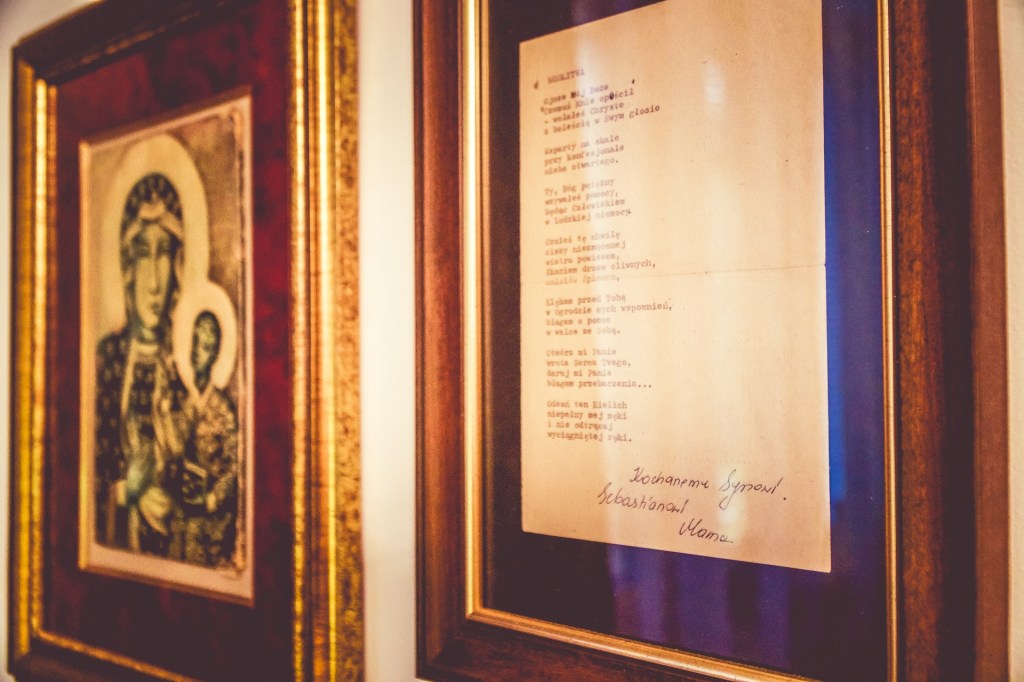 MODLITWA
Ojcze Mój Boże
Czemuś Mnie opuścił
- wołałeś Chryste
z boleścią w Swym głosie
Wsparty na skale
przy konfesjonale
nieba otwartego.
Ty, Bóg potężny
wzywałeś pomocy,
będąc Człowiekiem
w ludzkiej niemocy
Czułeś tę chwilę
ciszy niezmąconej
wiatru powiewem,
łkaniem drzew oliwnych,
Klękam przed Tobą
w Ogrodzie mych wspomnień,
błagam o pomoc
w walce ze sobą.
Otwórz mi Panie
wrota Serca Twego,
daruj mi Panie
błagam przebaczenia...
Odsuń ten Kielich
niepełny mej męki
i nie odtrącaj
wyciągniętej ręki.
Kochanemu Synowi.
Sebastianowi
Mama